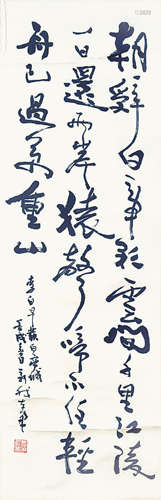 朝辭白帝彩雲間千里江陵
一日還兩岸猿聲啼不住輕
舟已過萬重山
李白早發白帝城